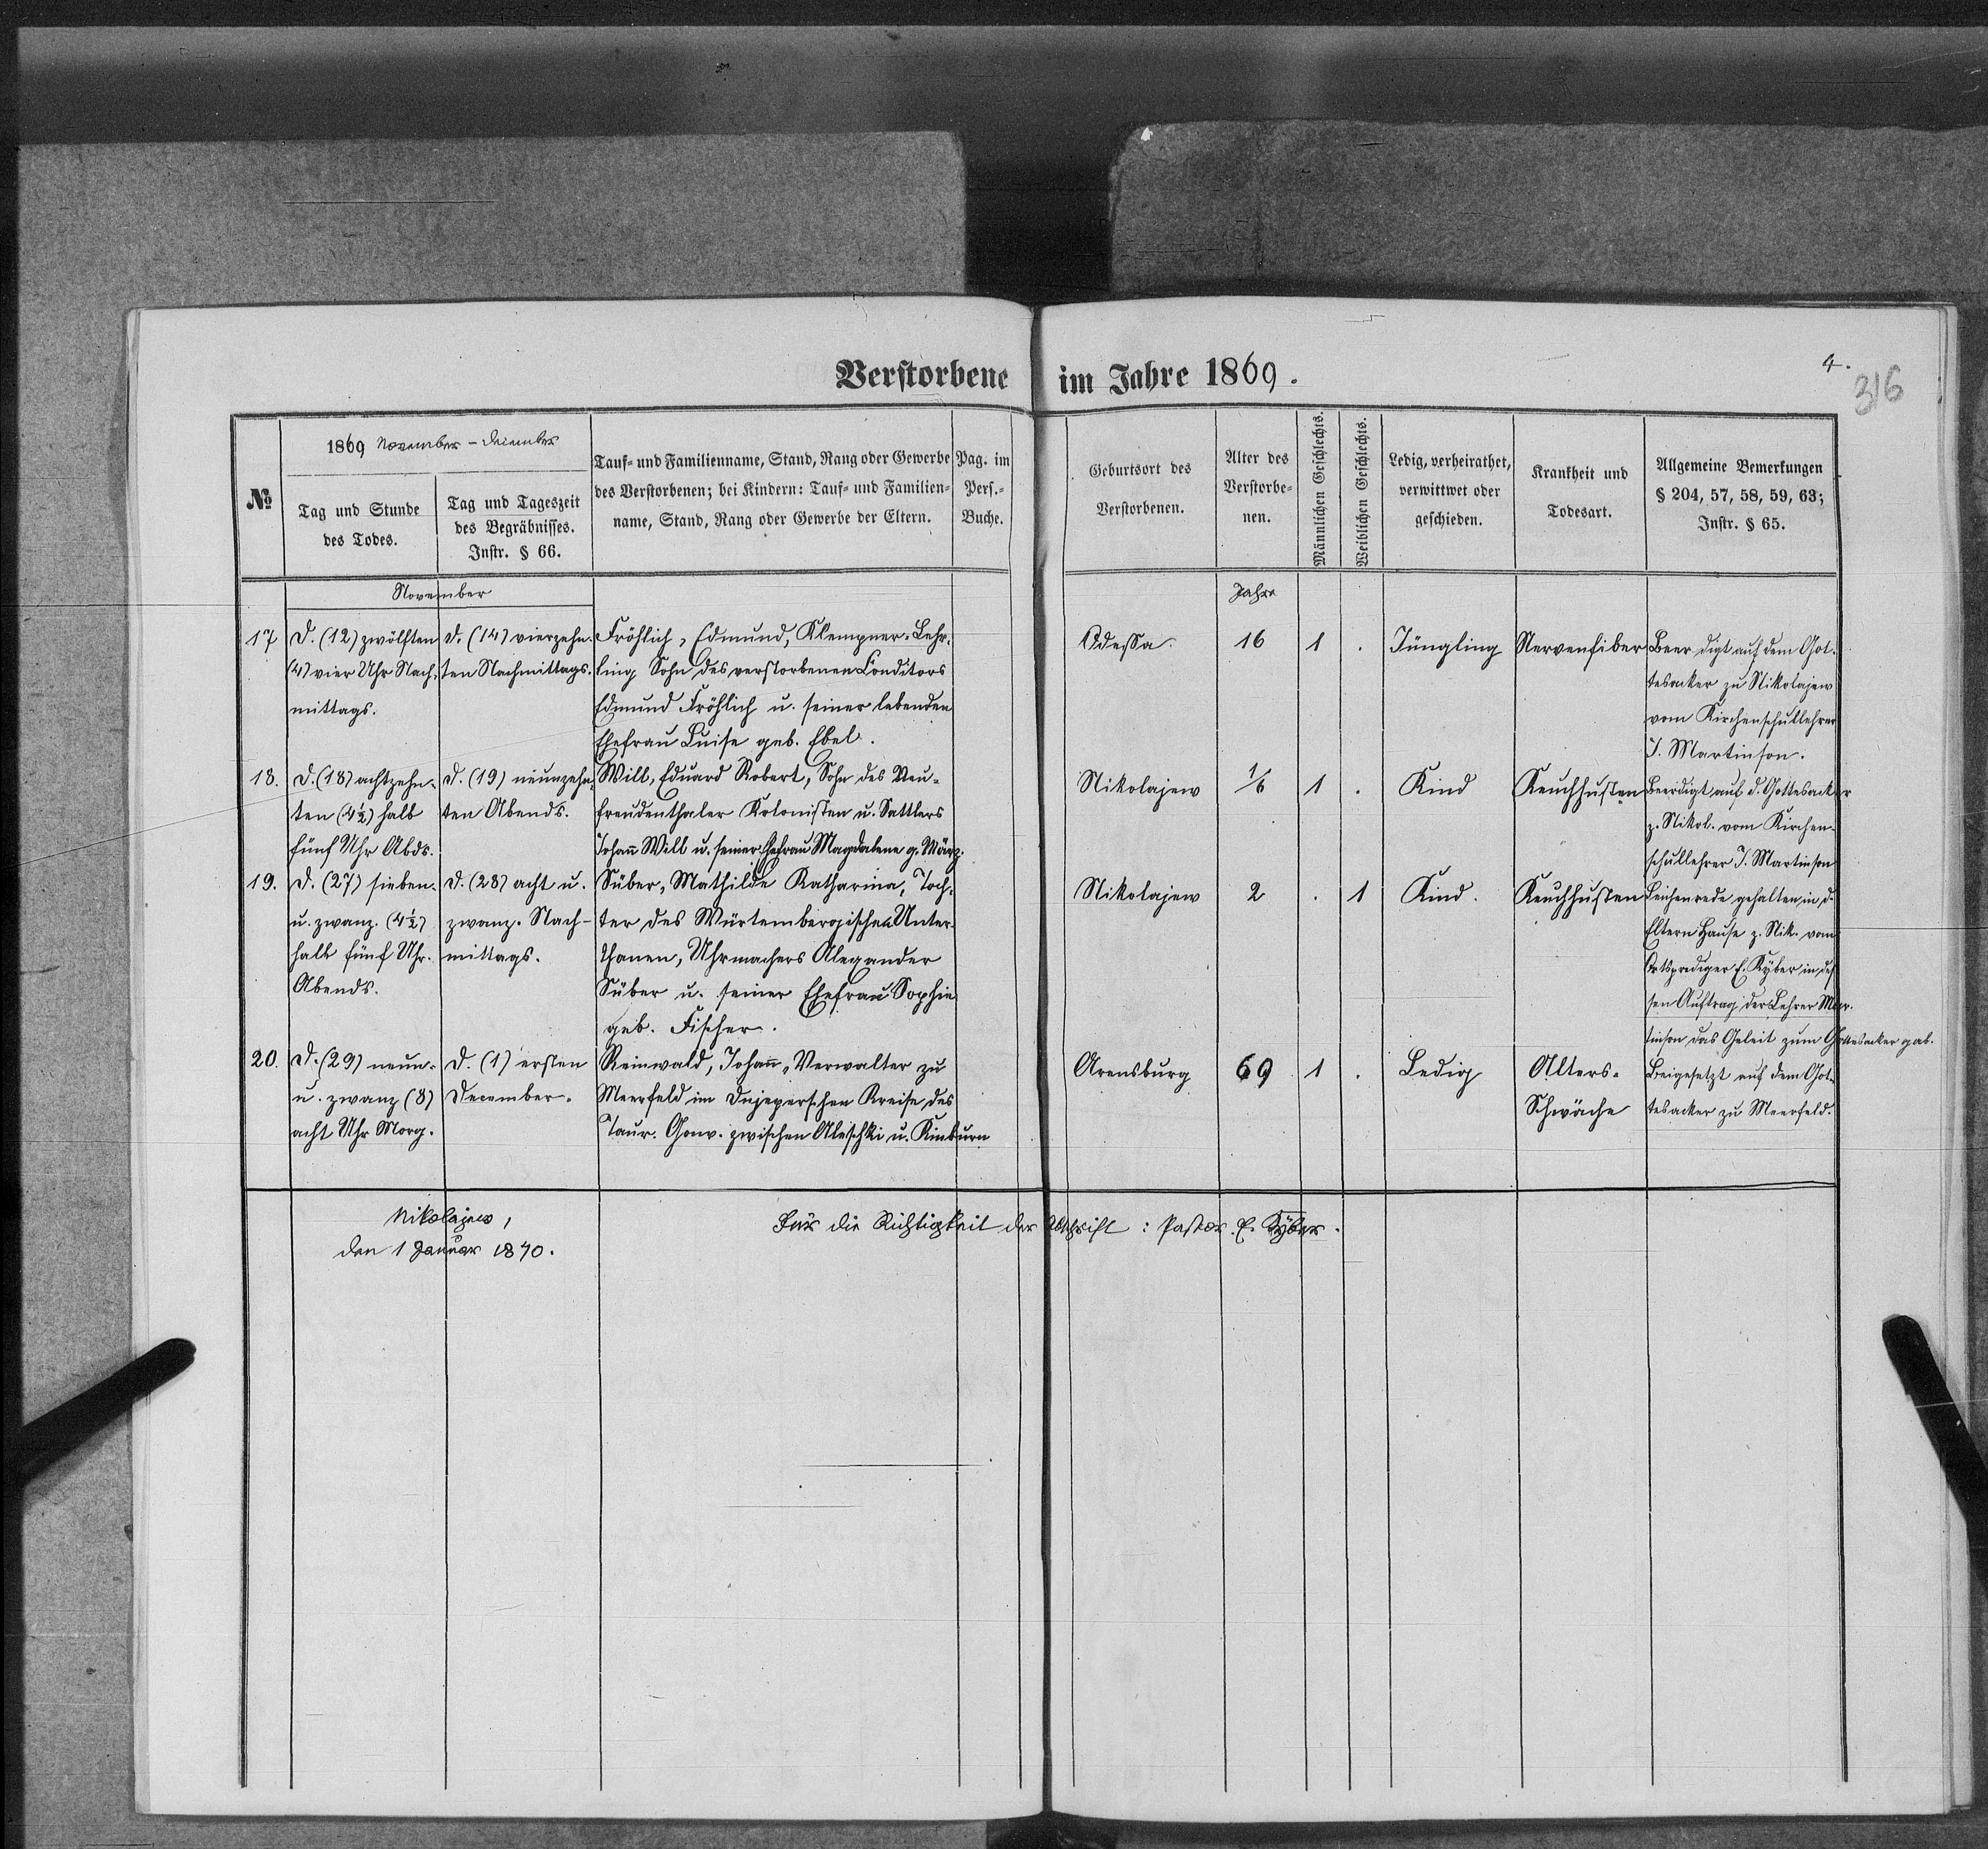 Verstorbene im Jahre 1869.
4.
316
№
1869 November - December
Tag und Stunde
des Todes.
Tag und Tageszeit
des Begräbnisses.
Instr. § 66.
Tauf- und Familienname, Stand, Rang oder Gewerbe
des Verstorbenen; bei Kindern: Tauf- und Familien-
name, Stand, Rang oder Gewerbe der Eltern.
Pag. im
Pers.-
Buche.
Geburtsort des
Verstorbenen.
Alter des
Verstorbe-
nen.
Männlichen Geschlechts.
Weiblichen Geschlechts.
Ledig, verheirathet,
verwittwet oder
geschieden.
Krankheit und
Todesart.
Allgemeine Bemerkungen
§ 204, 57, 58, 59, 63;
Instr. § 65.
November
Jahre
17
D. (12) zwölften
(4) vier Uhr Nach-
mittags.
D. (14) vierzehn-
ten Nachmittags.
Fröhlich, Edmund, Klempner-Lehr-
ling Sohn des verstorbenen Conditors
Edmund Fröhlich u. seiner lebenden
Ehefrau Luise geb. Ebel.
Odessa.
16
1
.
Jüngling
Nervenfieber
Beerdigt auf dem Got-
tesacker zu Nikolajew
vom Kirchenschullehrer
J. Martinson.
18.
D. (18) achtzehn-
ten (4½) halb
fünf Uhr Abds.
D. (19) neunzehn-
ten Abends.
Will, Eduard Robert, Sohn des Neu-
freudenthaler Kolonisten u. Sattlers
Johañ Will u. seiner Ehefrau Magdalena g. März.
Nikolajew
1/6
1
.
Kind
Keuchhusten
Beerdigt auf d. Gottesacker
z. Nikol. vom Kirchen-
schullehrer J. Martinson
19.
D. (27) sieben-
u. zwanz. (4½)
halb fünf Uhr.
Abends.
D. (28) acht u.
zwanz. Nach-
mittags.
Süber, Mathilde Katharina, Toch-
ter des Würtembergischen Unter-
thanen, Uhrmachers Alexander
Süber u. seiner Ehefrau Sophie
geb. Fischer.
Nikolajew
2
.
1
Kind.
Keuchhusten
Leichenrede gehalten in d.
Eltern Hause z. Nik. vom
Ortsprediger E. Kyber in des
sen Auftrag der Lehrer Mar-
tinson das Geleit zum Gottesacker gab.
20.
D. (29) neun-
u. zwanz (8)
acht Uhr Morg.
D. (1) ersten
December.
Reinwald, Johañ, Verwalter zu
Meerfeld im Dnjeperschen Kreise, des
Taur. Gouv. zwischen Aleschki u. Kinburn
Arensburg
69
1
.
Ledig
Alters-
Schwäche
Beigesetzt auf dem Got-
tesacker zu Meerfeld.
Nikolajew,
den 1 Januar 1870.
Für die Richtigkeit der Abschrift: Pastor E. Kyber.